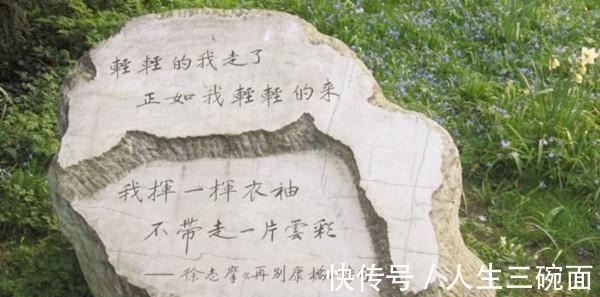 輕輕的我走了
正如我輕輕的来
我揮一揮衣袖
不带走一片雲彩
——徐志摩《再別康橋
快传号 / 人生三碗面